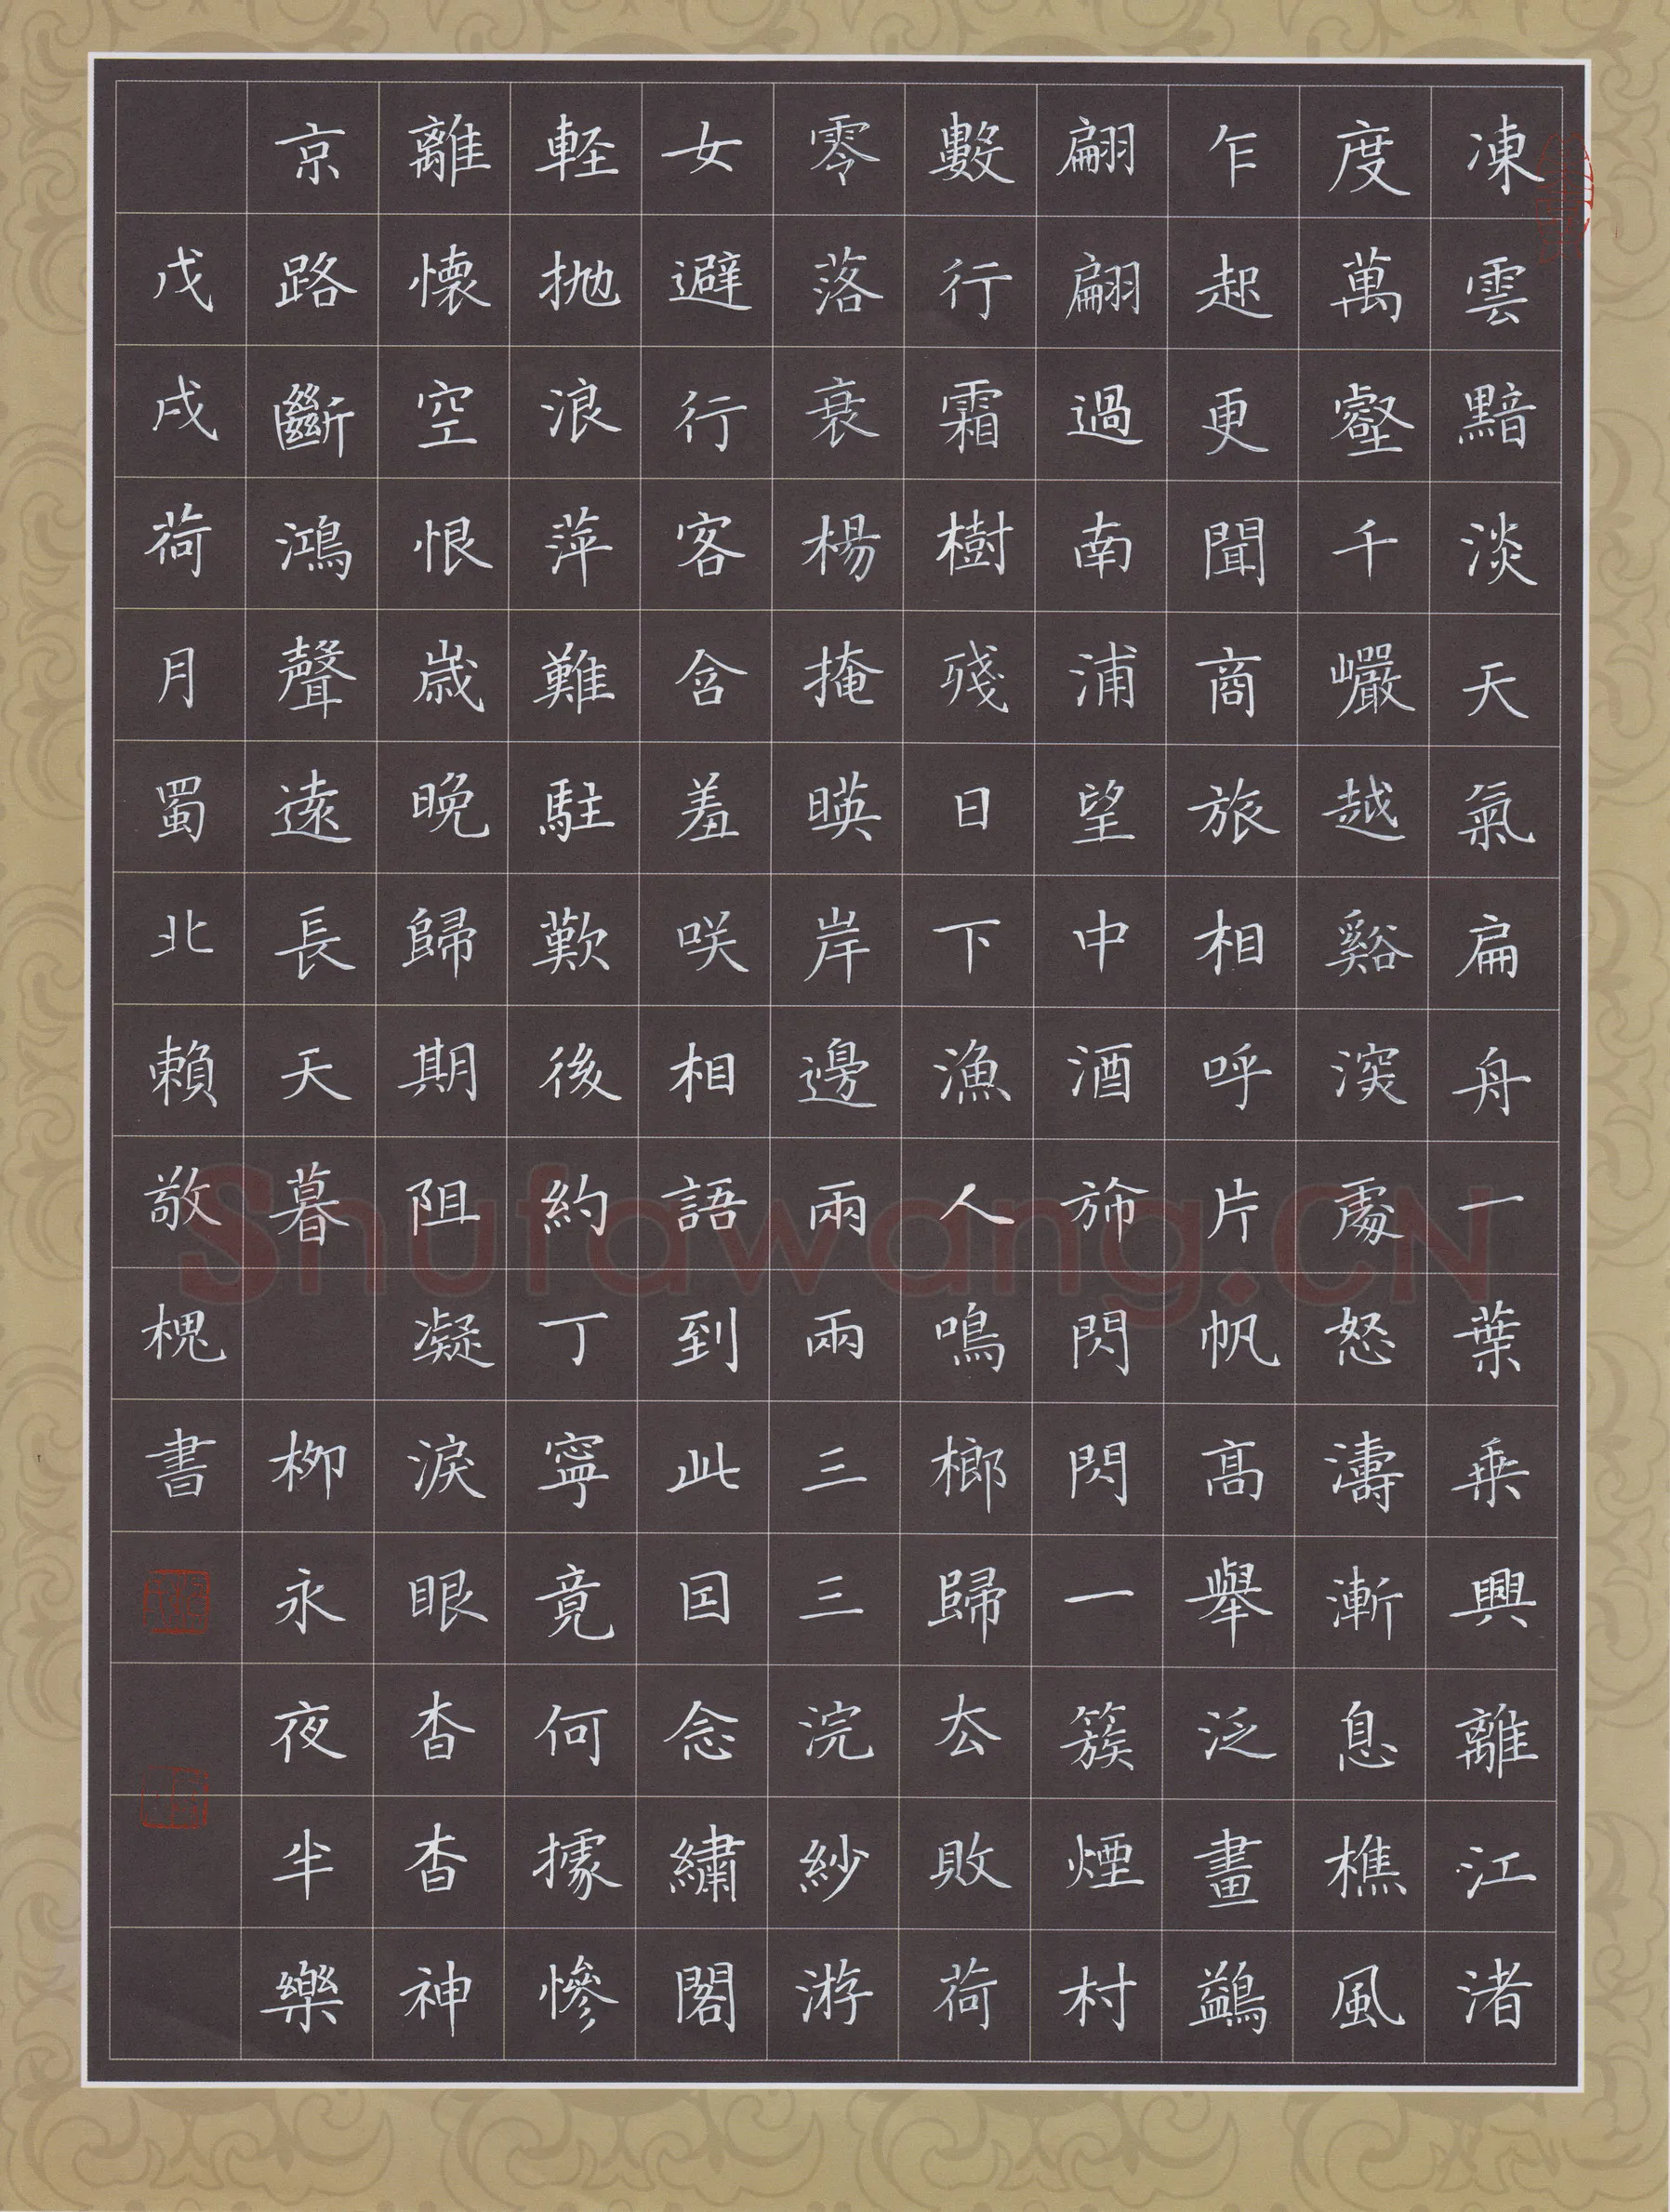 凍雲黯淡天氣扁舟一葉乗興離江渚
度萬壑千巗越谿深處怒濤漸息樵風
乍起更聞商旅相呼片帆髙舉泛畫鷁
翩翩過南浦望中酒斾閃閃一簇煙村
數行霜樹殘日下漁人鳴榔歸去敗荷
零落衰楊掩暎岸邊兩兩三三浣紗游
女避行客含羞咲相語到此因念繡閣
軽抛浪萍難駐歎後約丁寧竟何據慘
離懐空恨歳晚歸期阻凝淚眼杳杳神
京路斷鴻聲遠長天暮 柳永夜半樂
戊戌荷月蜀北賴敬槐書
Shufawang.CN